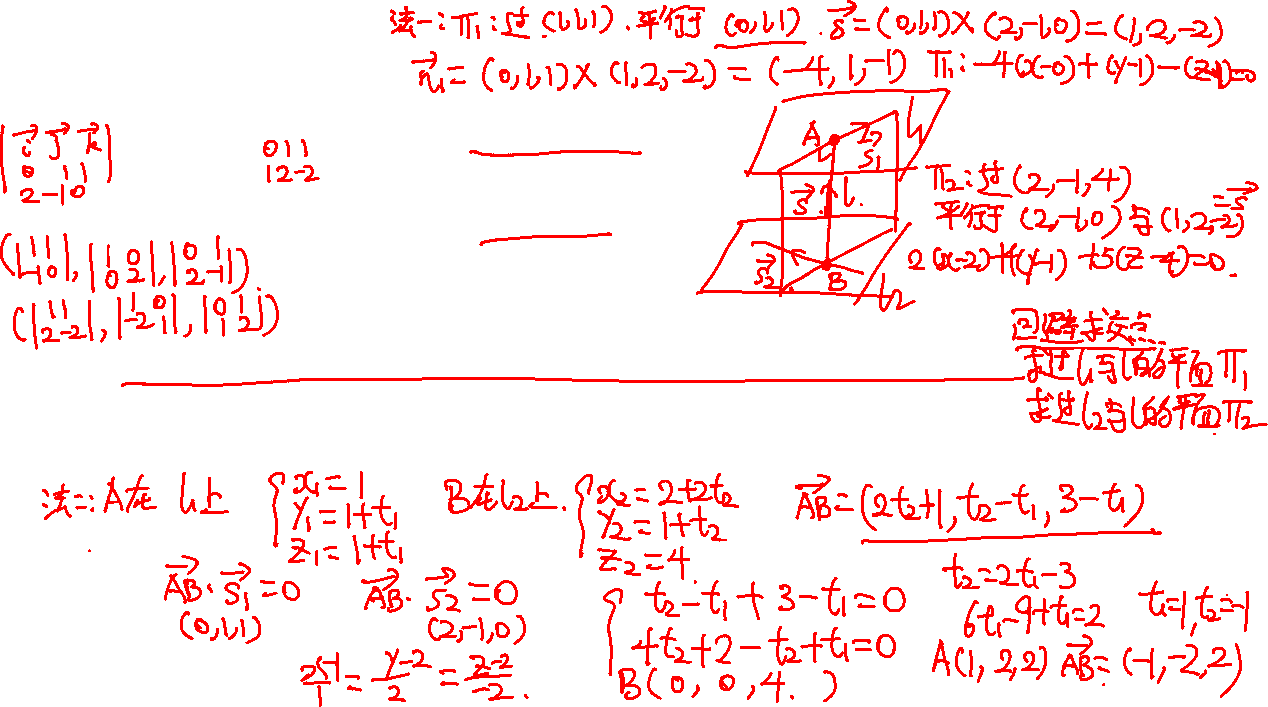 法一:π₁:过(1,1,1).平行于(0,1,1).s⃗=(0,1,1)×(2,-1,0)=(1,2,-2)
n⃗₁=(0,1,1)×(1,2,-2)=(-4,1,-1) π₁:-4(x-0)+(y-1)-(z-1)=0
|i⃗ j⃗ k⃗|
0 1 1
2 -1 0
0 1 1
1 2 -2
(|1 1 -1 0|,|1 0 0 2|,|0 1 2 -1|)
(|1 1 2 -2|,|1 0 -2 1|,|0 1 1 2|)
A
s⃗₁
l₁
s⃗
l.
s⃗₂
B
l₂
π₂:过(2,-1,4)
平行于(2,-1,0)与(1,2,-2)=s⃗
2(x-2)+4(y-1)+5(z-4)=0.
回避求交点
求过l₁与l的平面π₁
求过l₂与l的平面π₂
法二:A在l₁上
{x₁=1
y₁=1+t₁
z₁=1+t₁
B在l₂上.
{x₂=2+2t₂
y₂=1+t₂
z₂=4
AB⃗=(2t₂+1,t₂-t₁,3-t₁)
AB⃗·s⃗₁=0
(0,1,1)
AB⃗·s⃗₂=0
(2,-1,0)
{t₂-t₁+3-t₁=0
4t₂+2-t₂+t₁=0
t₂=2t₁-3
6t₁-9+t₁=2
t₁=1,t₂=-1
A(1,2,2) AB⃗=(-1,-2,2)
B(0,0,4.)
x-1/1=y-2/2=z-2/-2.